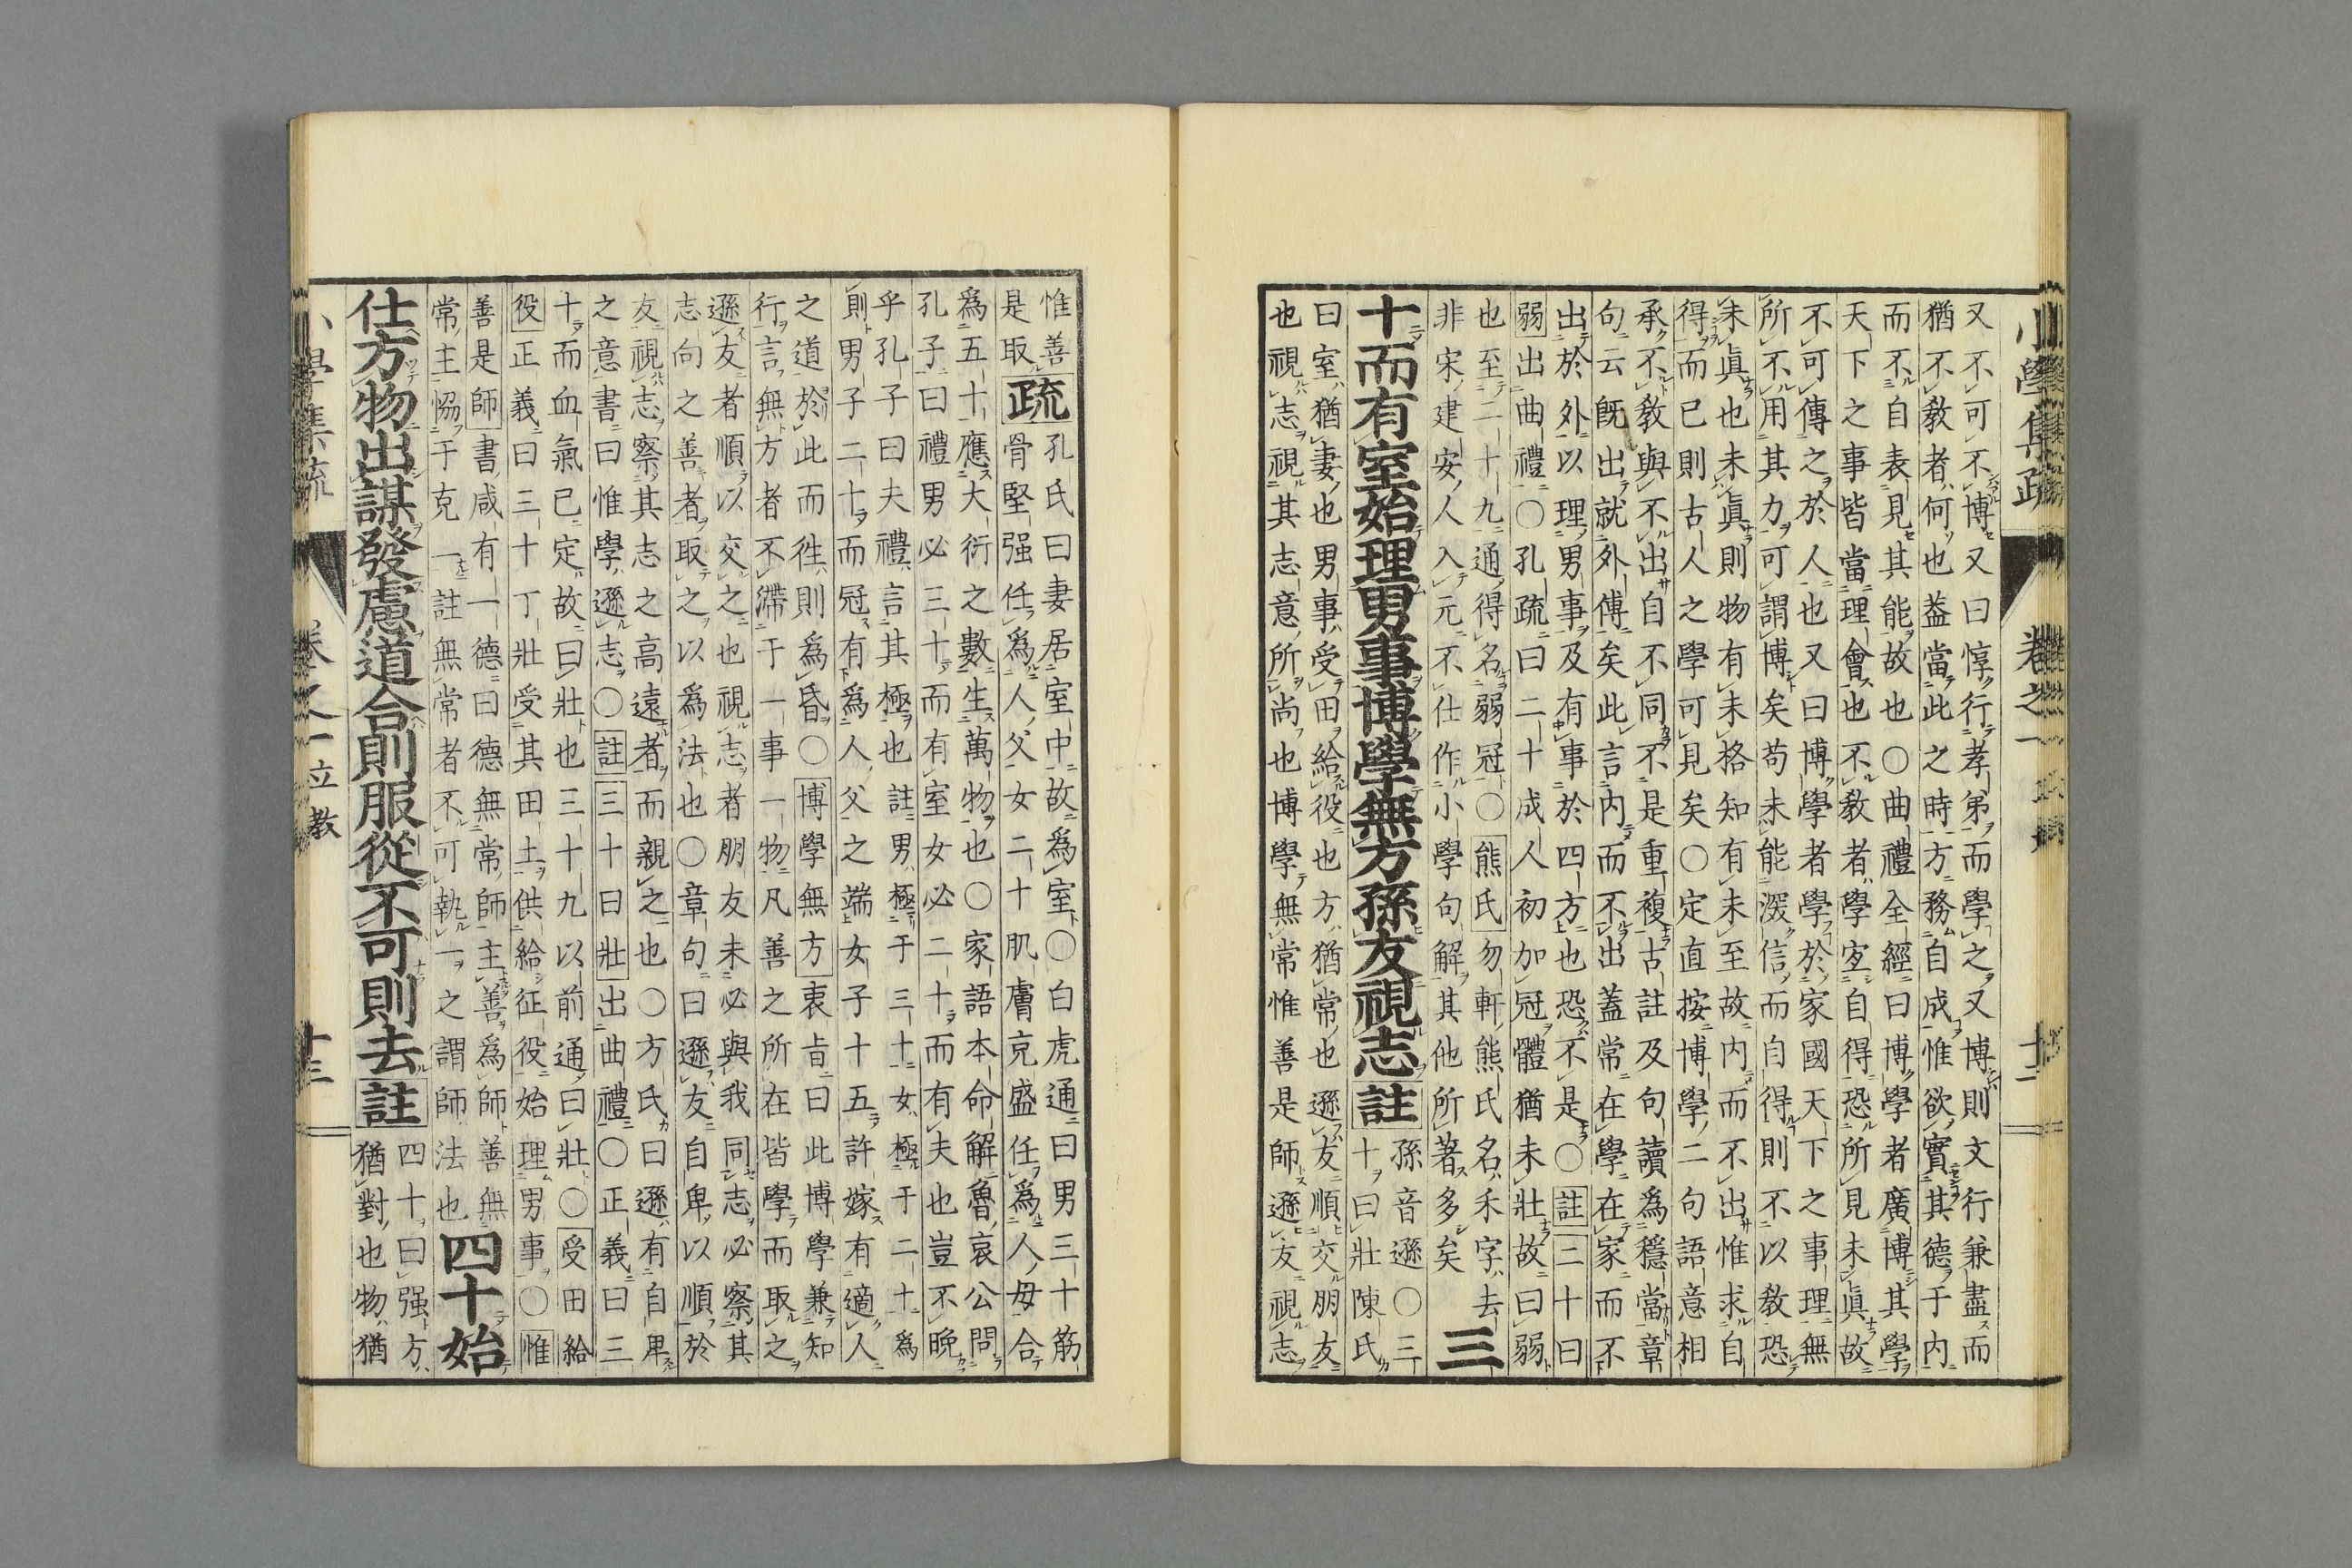 小學集疏 卷之一 十二
又不可不博又曰惇行孝弟而學之又博則文行兼盡而
猶不敎者何也蓋當此之時方務自成惟欲實其德于内
而不自表見其能故也〇曲禮全經曰博學者廣博其學
天下之事皆當理會也不敎者學定自得恐所見未眞故
不可傳之於人也又曰博學者學於家國天下之事理無
所不用其力可謂博矣苟未能深信而自得則不以敎恐
未眞也未眞則物有未格知有未至故内而不出惟求自
得而已則古人之學可見矣〇定直按博學二句語意相
承不敎與不出自不同不是重複古註及句讀爲穩當章
句云旣出就外傅矣此言内而不出蓋常在學在家而不
出於外以理男事及有事於四方也恐不是〇註二十曰
弱出曲禮〇孔疏曰二十成人初加冠體猶未壯故曰弱
也至二十九通得名弱冠〇熊氏勿軒熊氏名禾字去
非宋建安人入元不仕作小學句解其他所著多矣
三
十而有室始理男事博學無方孫友視志註
孫音遜〇三
十曰壯陳氏
曰室猶妻也男事受田給役也方猶常也遜友順交朋友
也視志視其志意所尚也博學無常惟善是師遜友視志
惟善是取疏孔氏曰妻居室中故爲室〇白虎通曰男三十筋
骨堅强任爲人父女二十肌膚充盛任爲人母合
爲五十應大衍之數生萬物也〇家語本命解魯哀公問
孔子曰禮男必三十而有室女必二十而有夫也豈不晩
乎孔子曰夫禮言其極也註男極于三十女極于二十爲
則男子二十而冠有爲人父之端女子十五許嫁有適人
之道於此而徃則爲昏〇博學無方衷旨曰此博學兼知
行言無方者不滯于一事一物凡善之所在皆學而取之
遜友者順以交之也視志者朋友未必與我同志必察其
志向之善者取之以爲法也〇章句曰遜友自卑以順於
友視志察其志之高遠者而親之也〇方氏曰遜有自卑
之意書曰惟學遜志〇註三十曰壯出曲禮〇正義曰三
十而血氣已定故曰壯也三十九以前通曰壯〇受田給
役正義曰三十丁壯受其田土供給征役始理男事〇惟
善是師書咸有一德曰德無常師主善爲師善無
常主協于克一註無常者不可執一之謂師法也
四十始
仕方物出謀發慮道合則服從不可則去註
四十曰强方
猶對也物猶
小學集疏 卷之一 立敎 十三